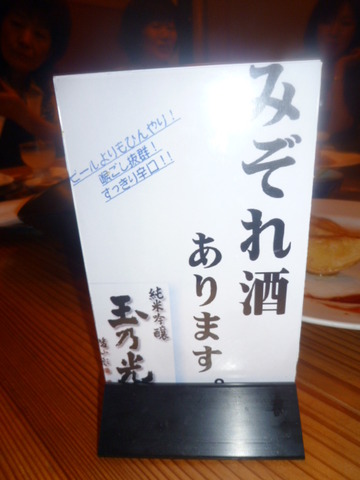 みぞれ酒
あります。
ビールよりもひんやり！
喉ごし抜群！
すっきり辛口！！
純米吟醸
玉乃光